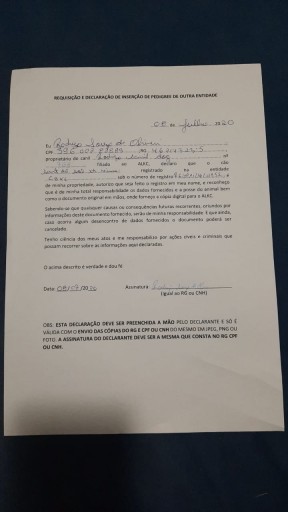 REQUISIÇÃO E DECLARAÇÃO DE INSERÇÃO DE PEDIGREE DE OUTRA ENTIDADE
de Julho 20
Eu Rodrigo
CPF RG
proprietário do canil nº
filiado ao ALKC, declaro que o cão
registrado na entidade
sob o número de registro é
de minha propriedade, autorizo que seja feito o registro em meu nome, e reconheço
que é de minha total responsabilidade os dados fornecidos e a posse do animal bem
como o documento original em mãos, onde forneço a cópia digital para o ALKC.
Sabendo-se que quaisquer causas ou consequências futuras recorrentes, oriundos por
informações deste documento fornecido, serão de minha responsabilidade. E que ainda,
caso ocorra algum desencontro de dados fornecidos o documento poderá ser
cancelado.
Tenho ciência dos meus atos e me responsabilizo por ações cíveis e criminais que
possam recorrer sobre as informações aqui declaradas.
O acima descrito é verdade e dou fé
Data Assinatura
(igual ao RG ou CNH)
OBS: ESTA DECLARAÇÃO DEVE SER PREENCHIDA A MÃO PELO DECLARANTE E SÓ É
VÁLIDA COM O ENVIO DAS CÓPIAS DO RG E CPF OU CNH DO MESMO EM JPEG, PNG OU
FOTO. A ASSINATURA DO DECLARANTE DEVE SER A MESMA QUE CONSTA NO RG CPF
OU CNH.